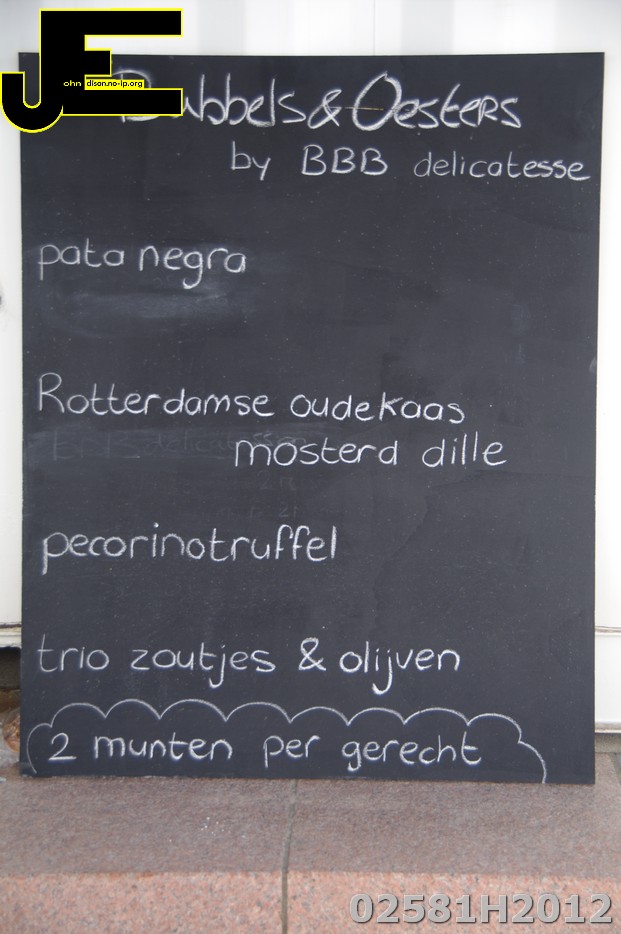 JE
ohn dison.no-ip.org
Bubbels & Oesters
by BBB delicatesse
pata negra
Rotterdamse oude kaas
mosterd dille
pecorinotruffel
trio zoutjes & olijven
2 munten per gerecht
02581H2012